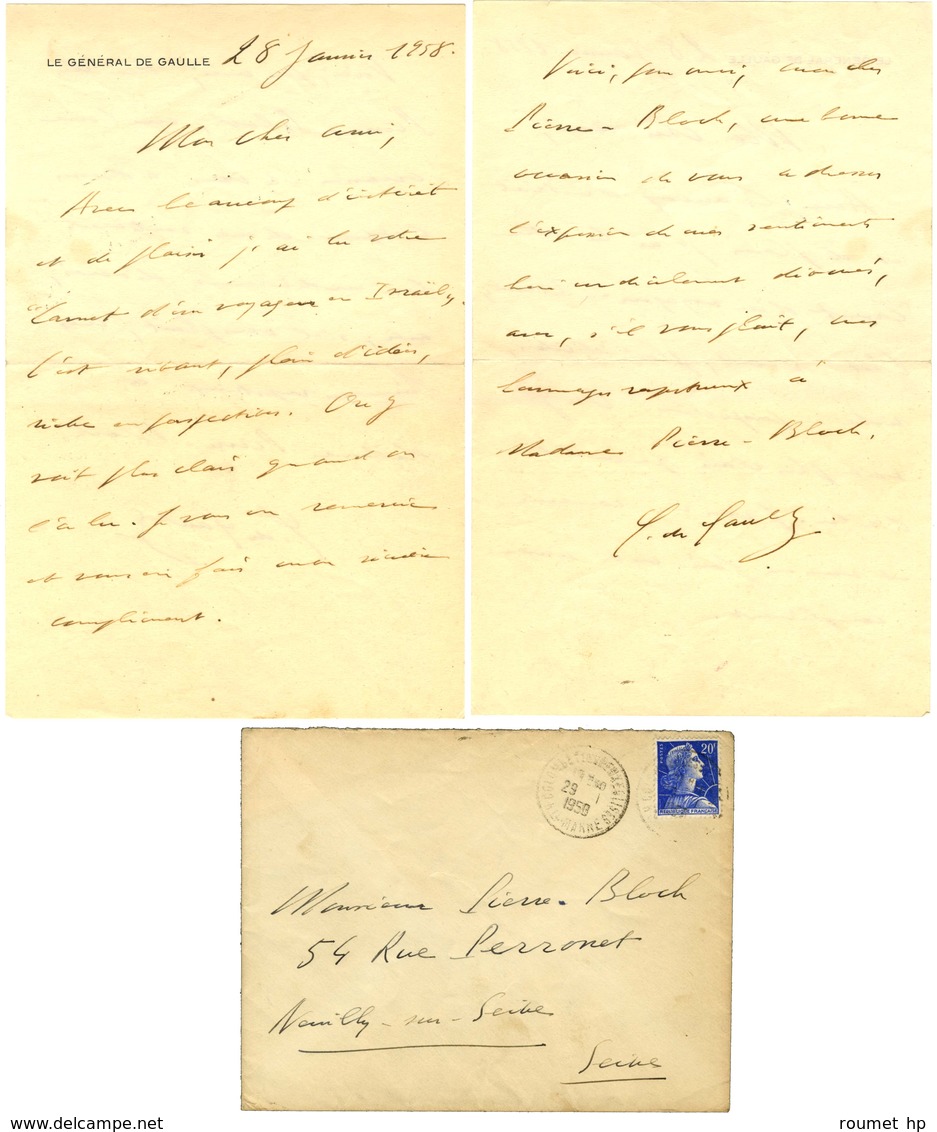 LE GÉNÉRAL DE GAULLE 28 Janvier 1958.
Mon cher ami,
Avec beaucoup d'intérêt
et de plaisir j'ai lu votre
"Carnet d'un voyageur en Israël".
C'est vivant, plein d'idées,
riche en perspectives. On y
voit plus clair quand on
l'a lu. Je vous en remercie
et vous en fais mon sincère
compliment.
Voici, mon cher
Pierre-Bloch, une bonne
occasion de vous adresser
l'expression de mes sentiments
bien cordialement dévoués,
avec, s'il vous plaît, mes
hommages respectueux à
Madame Pierre-Bloch.
C. de Gaulle
COLOMBEY-LES-DEUX-EGLISES
29 - 1
1958
Hte MARNE
POSTES
20F
REPUBLIQUE FRANÇAISE
Monsieur Pierre-Bloch
54 Rue Perronet
Neuilly-sur-Seine
Seine
roumet hp